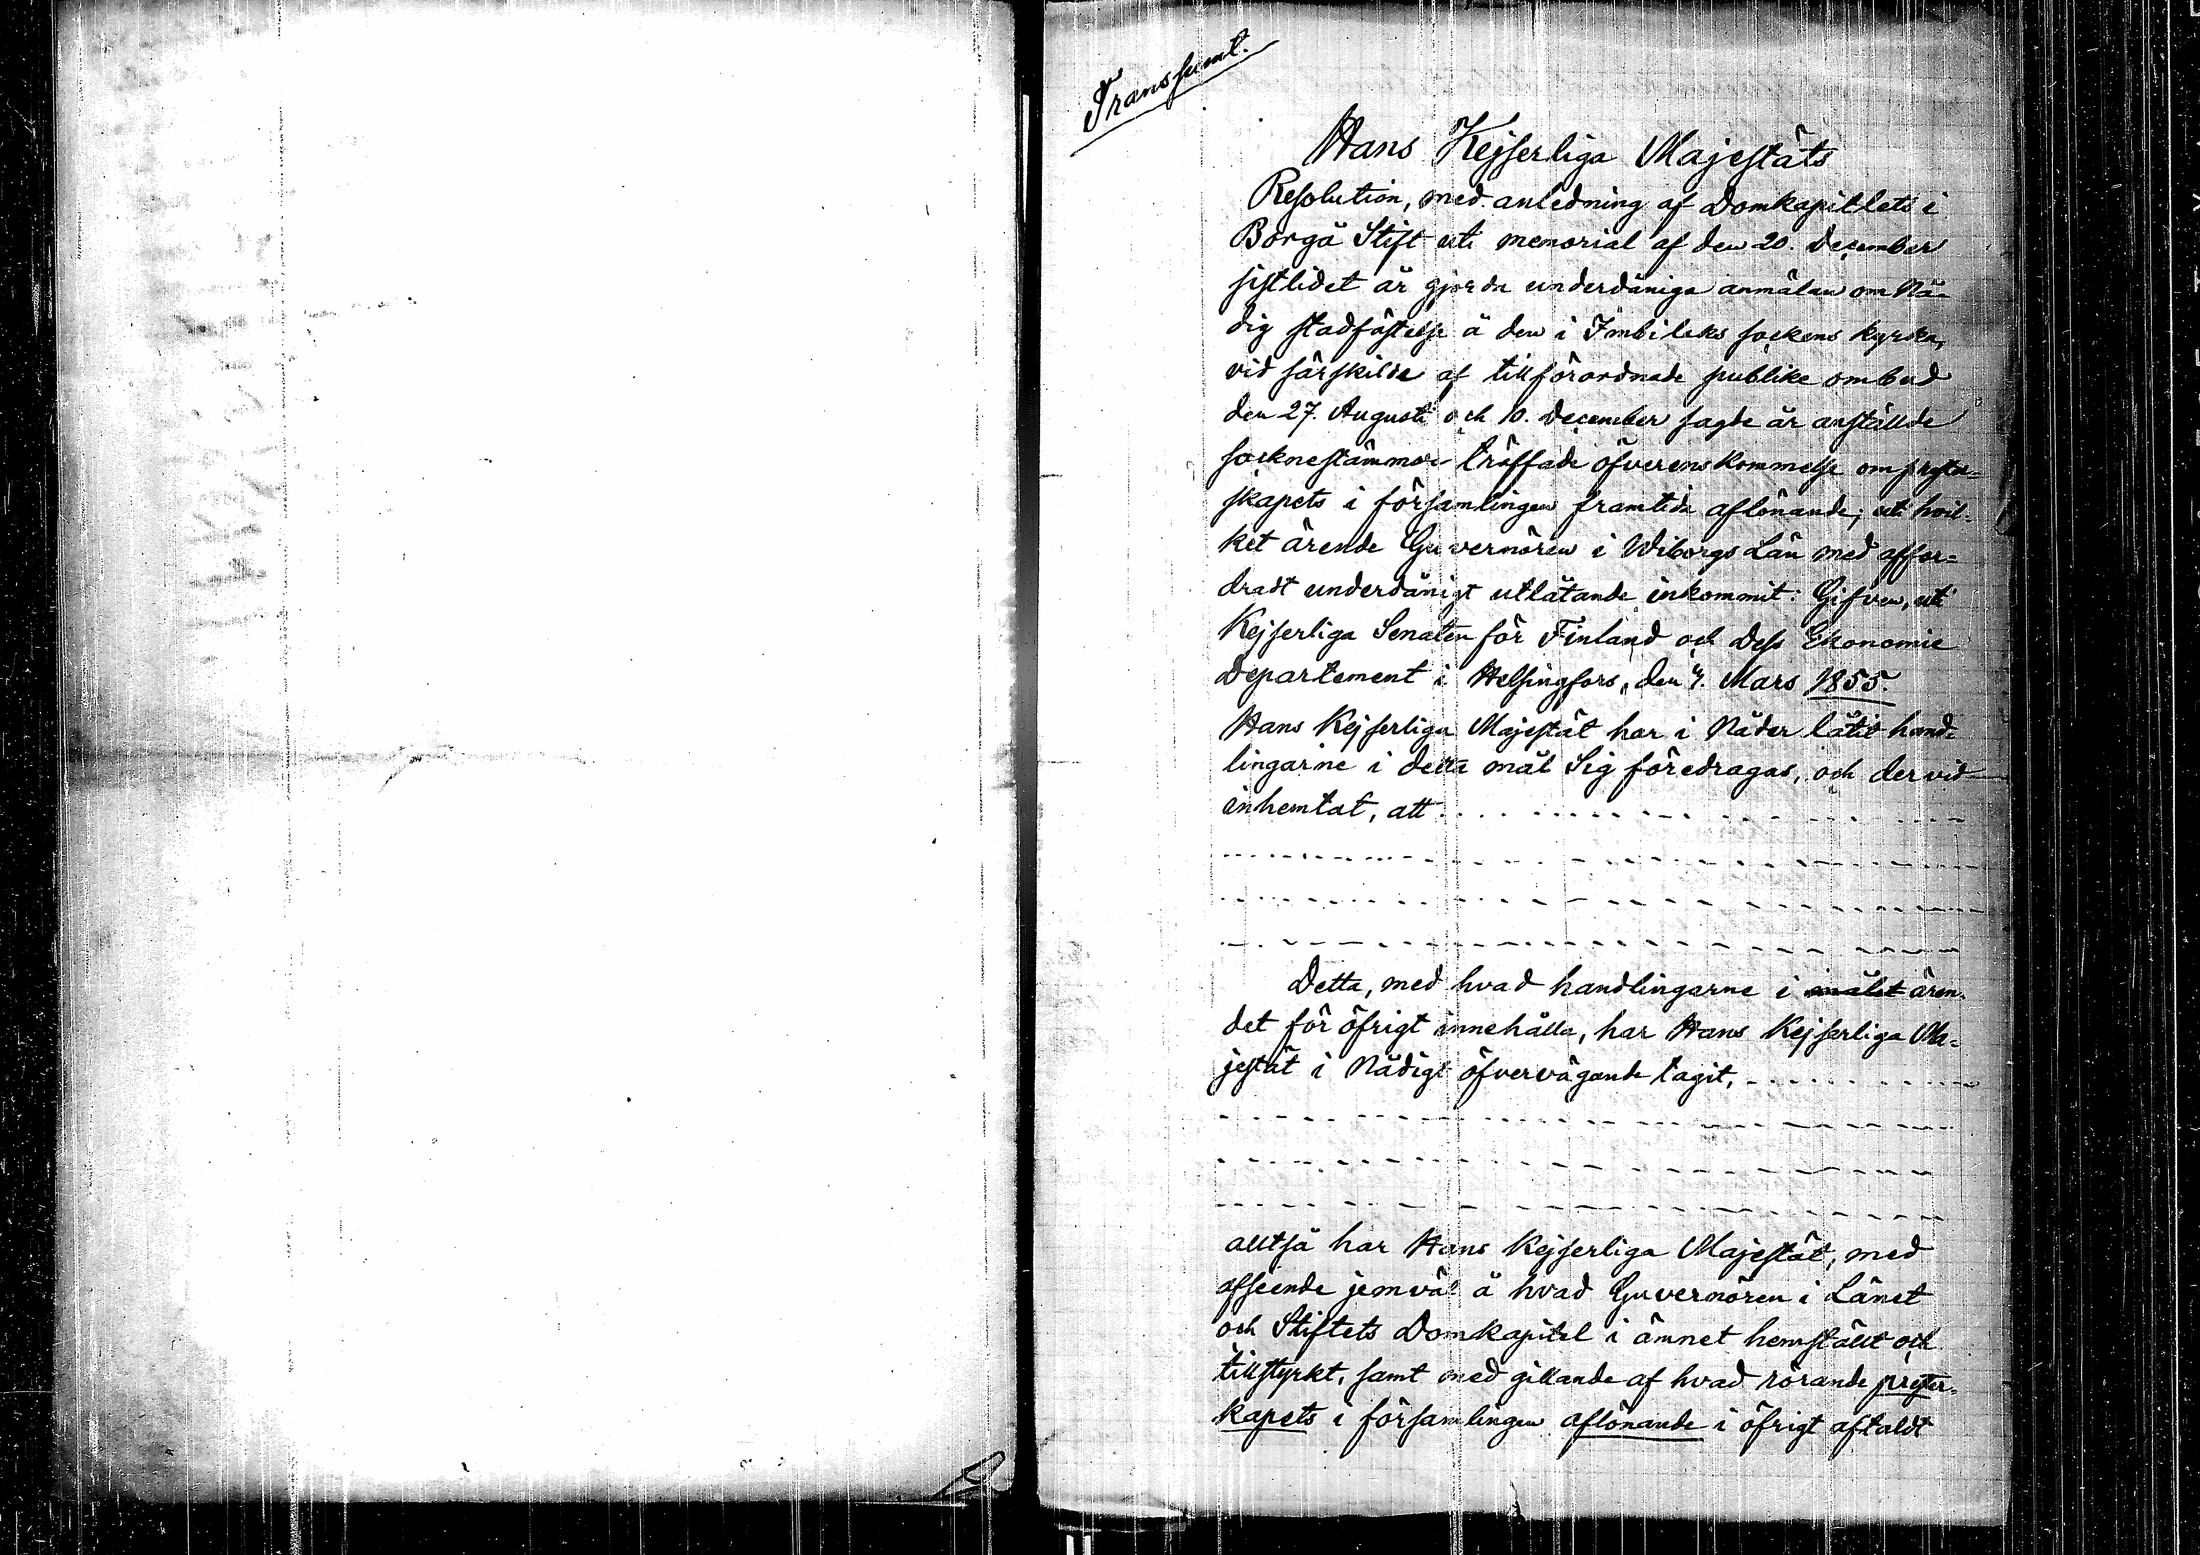 Transsumt.
Hans Kejserliga Majestäts
Resolution, med anledning af Domkapitlets i
Borgå Stift uti memorial af den 20. December
sistlidet år gjorda underdåniga anmälan om Nå-
dig stadfästelse å den i Imbilaks sockens kyrka,
vid särskilde af tillförordnade publike ombud
den 27. Augusti och 10. December sagde år anställde
socknestämmor träffade öfverenskommelse om prester-
skapets i församlingen framtida aflönande; uti hvil-
ket ärende Guvernören i Wiborgs Län med affor-
dradt underdånigt utlåtande inkommit: Gifven, uti
Kejserliga Senaten för Finland och Dess Ekonomie
Departement i Helsingfors, den 7. Mars 1855.
Hans Kejserliga Majestät har i Nåder låtit hand-
lingarne i detta mål Sig föredragas, och dervid
inhemtat, att
Detta, med hvad handlingarne i målet ären-
det för öfrigt innehålla, har Hans Kejserliga Ma-
jestät i Nådigt öfvervägande tagit,
alltså har Hans Kejserliga Majestät, med
afseende jemväl å hvad Guvernören i Länet
och Stiftets Domkapitel i ämnet hemställt och
tillstyrkt, samt med gillande af hvad rörande prester-
kapets i församlingen aflönande i öfrigt aftaldt